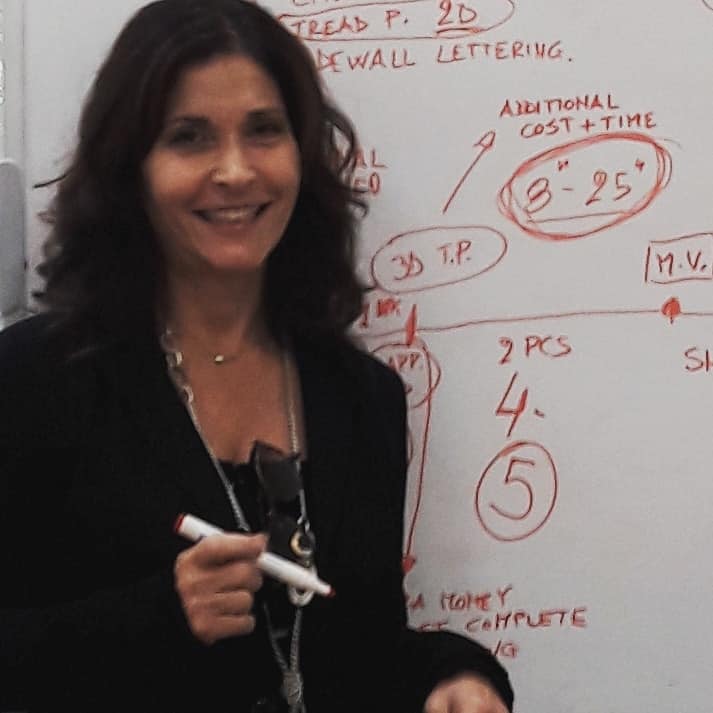 TREAD P. 2D
DEWALL LETTERING.
ADDITIONAL
COST + TIME
8" - 25"
AL
ED
3D T.P.
M.V.
1
APP.
2 PCS
SH
4.
5
A MONEY
COMPLETE